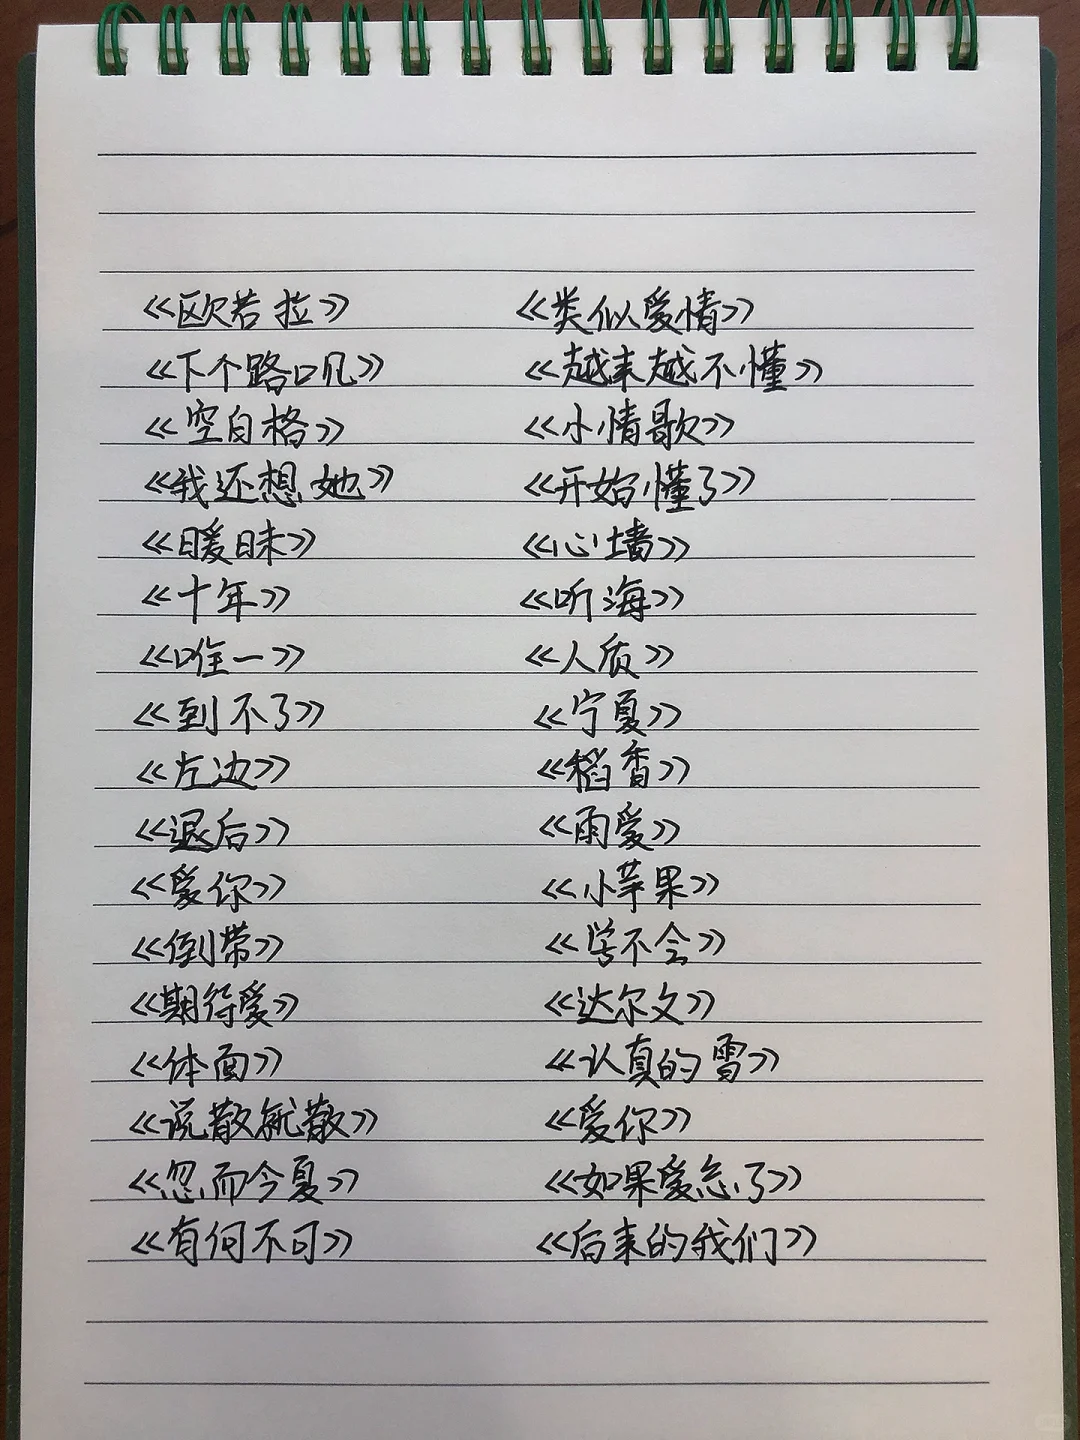 《欧若拉》 《类似爱情》
《下个路口见》 《越来越不懂》
《空白格》 《小情歌》
《我还想她》 《开始懂了》
《暧昧》 《心墙》
《十年》 《听海》
《唯一》 《人质》
《到不了》 《宁夏》
《左边》 《稻香》
《退后》 《雨爱》
《爱你》 《小苹果》
《倒带》 《学不会》
《期待爱》 《达尔文》
《体面》 《认真的雪》
《说散就散》 《爱你》
《忽而今夏》 《如果爱忘了》
《有何不可》 《后来的我们》